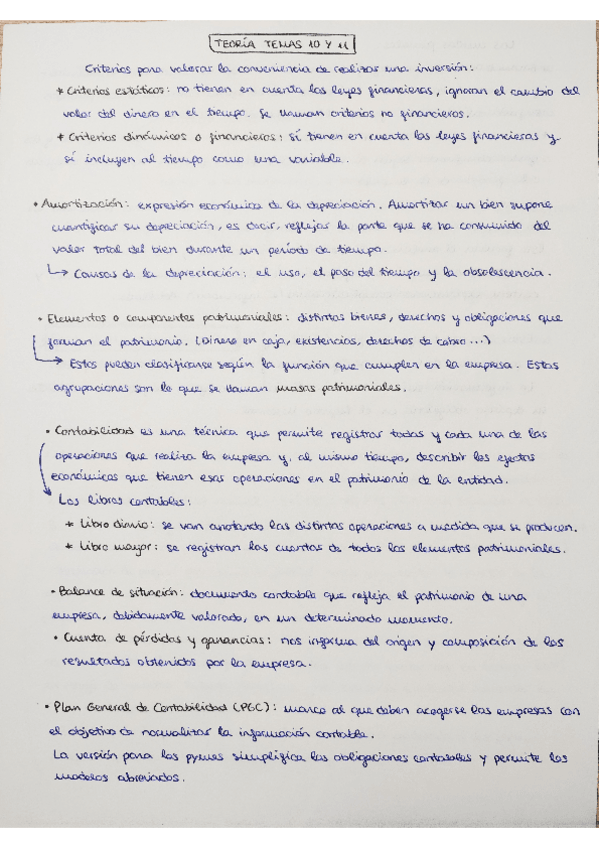 TEORÍA TEMAS 10 Y 11
Criterios para valorar la conveniencia de realizar una inversión:
* Criterios estáticos: no tienen en cuenta las leyes financieras, ignoran el cambio del
valor del dinero en el tiempo. Se llaman criterios no financieros.
* Criterios dinámicos o financieros: sí tienen en cuenta las leyes financieras y
sí incluyen al tiempo como una variable.
• Amortización: expresión económica de la depreciación. Amortizar un bien supone
cuantificar su depreciación, es decir, reflejar la parte que se ha consumido del
valor total del bien durante un período de tiempo.
↳ Causas de la depreciación: el uso, el paso del tiempo y la obsolescencia.
• Elementos o componentes patrimoniales: distintos bienes, derechos y obligaciones que
forman el patrimonio. (Dinero en caja, existencias, derechos de cobro ...)
→ Estos pueden clasificarse según la función que cumplen en la empresa. Estas
agrupaciones son lo que se llaman masas patrimoniales.
• Contabilidad es una técnica que permite registrar todas y cada una de las
operaciones que realiza la empresa y, al mismo tiempo, describir los efectos
económicos que tienen esas operaciones en el patrimonio de la entidad.
Los libros contables:
* Libro diario: se van anotando las distintas operaciones a medida que se producen.
* Libro mayor: se registran las cuentas de todos los elementos patrimoniales.
• Balance de situación: documento contable que refleja el patrimonio de una
empresa, debidamente valorado, en un determinado momento.
• Cuenta de pérdidas y ganancias: nos informa del origen y composición de los
resultados obtenidos por la empresa.
• Plan General de Contabilidad (PGC): marco al que deben acogerse las empresas con
el objetivo de normalizar la información contable.
La versión para las pymes simplifica las obligaciones contables y permite los
modelos abreviados.